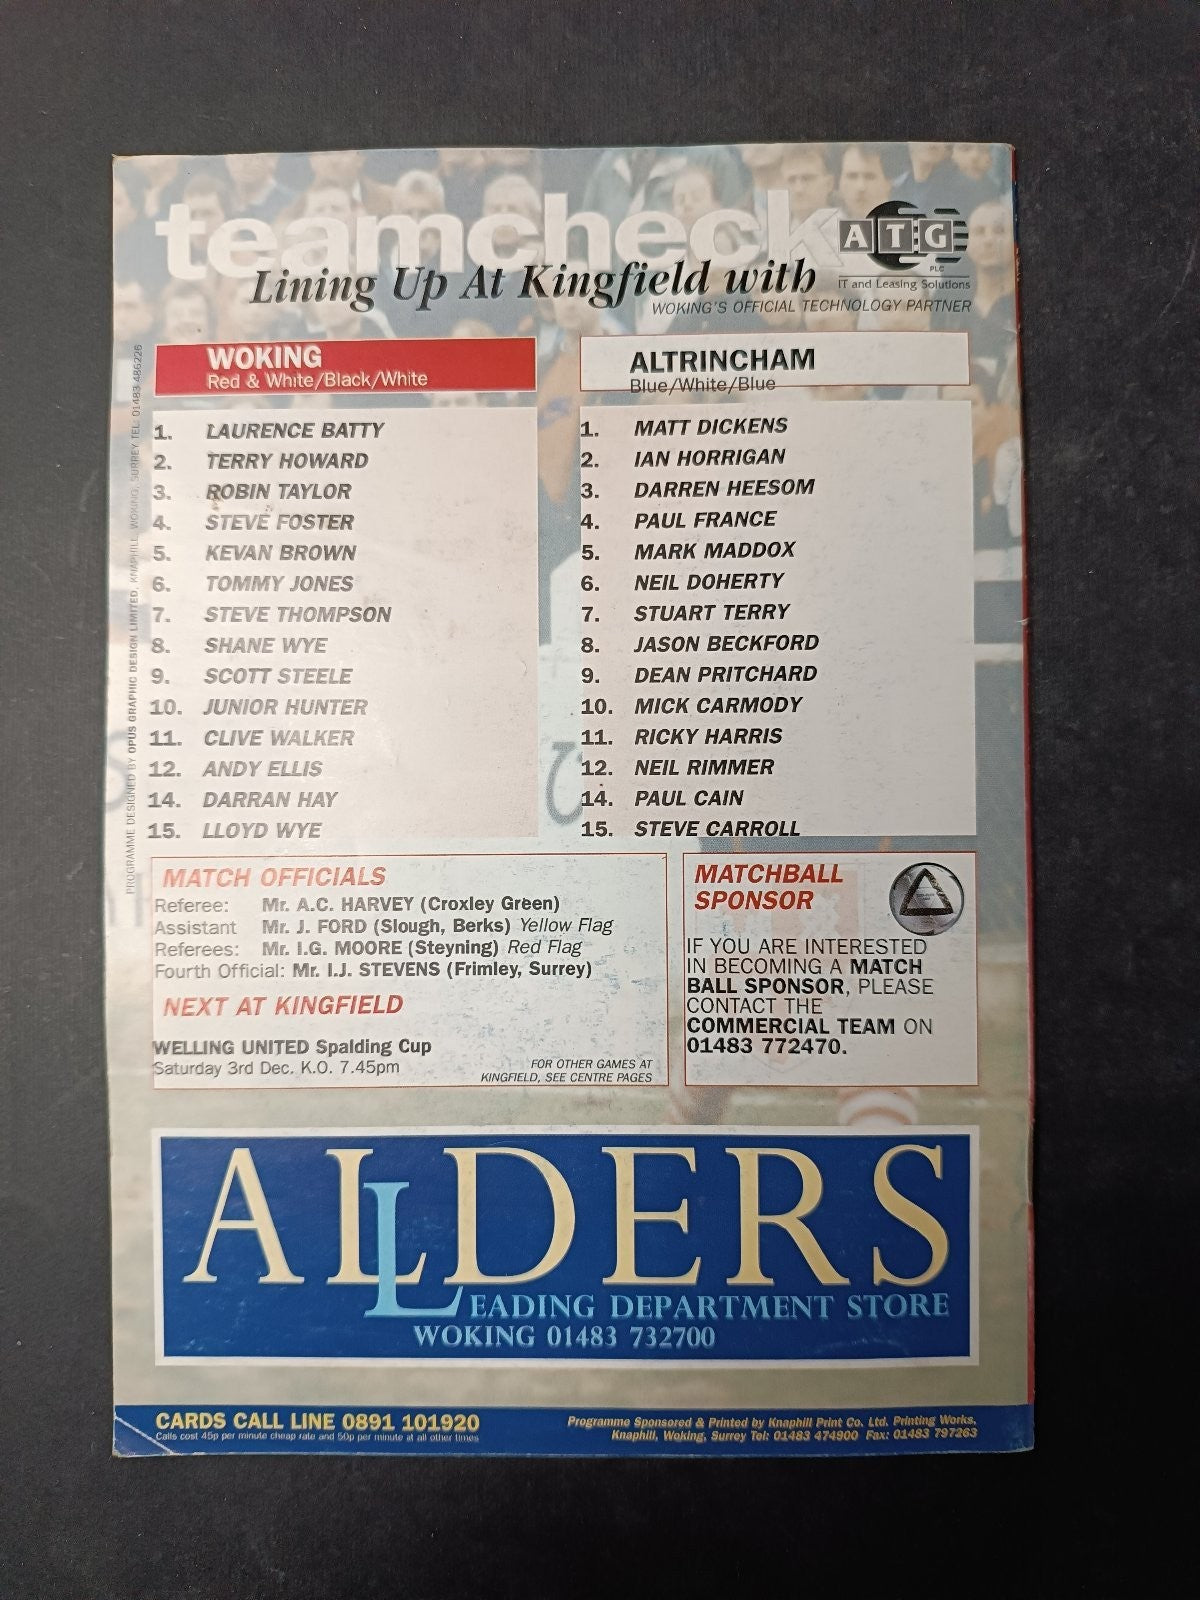 teamcheck
Lining Up At Kingfield with
ATG
PLC
IT and Leasing Solutions
WOKING'S OFFICIAL TECHNOLOGY PARTNER
PROGRAMME DESIGNED BY OPUS GRAPHIC DESIGN LIMITED, KNAPHILL, WOKING, SURREY TEL: 01483 486226
WOKING
Red & White/Black/White
1. LAURENCE BATTY
2. TERRY HOWARD
3. ROBIN TAYLOR
4. STEVE FOSTER
5. KEVAN BROWN
6. TOMMY JONES
7. STEVE THOMPSON
8. SHANE WYE
9. SCOTT STEELE
10. JUNIOR HUNTER
11. CLIVE WALKER
12. ANDY ELLIS
14. DARRAN HAY
15. LLOYD WYE
ALTRINCHAM
Blue/White/Blue
1. MATT DICKENS
2. IAN HORRIGAN
3. DARREN HEESOM
4. PAUL FRANCE
5. MARK MADDOX
6. NEIL DOHERTY
7. STUART TERRY
8. JASON BECKFORD
9. DEAN PRITCHARD
10. MICK CARMODY
11. RICKY HARRIS
12. NEIL RIMMER
14. PAUL CAIN
15. STEVE CARROLL
MATCH OFFICIALS
Referee: Mr. A.C. HARVEY (Croxley Green)
Assistant Mr. J. FORD (Slough, Berks) Yellow Flag
Referees: Mr. I.G. MOORE (Steyning) Red Flag
Fourth Official: Mr. I.J. STEVENS (Frimley, Surrey)
NEXT AT KINGFIELD
WELLING UNITED Spalding Cup
Saturday 3rd Dec. K.O. 7.45pm
FOR OTHER GAMES AT
KINGFIELD, SEE CENTRE PAGES
MATCHBALL
SPONSOR
IF YOU ARE INTERESTED
IN BECOMING A MATCH
BALL SPONSOR, PLEASE
CONTACT THE
COMMERCIAL TEAM ON
01483 772470.
ALLDERS
LEADING DEPARTMENT STORE
WOKING 01483 732700
CARDS CALL LINE 0891 101920
Calls cost 45p per minute cheap rate and 50p per minute at all other times
Programme Sponsored & Printed by Knaphill Print Co. Ltd. Printing Works,
Knaphill, Woking, Surrey Tel: 01483 474900 Fax: 01483 797263